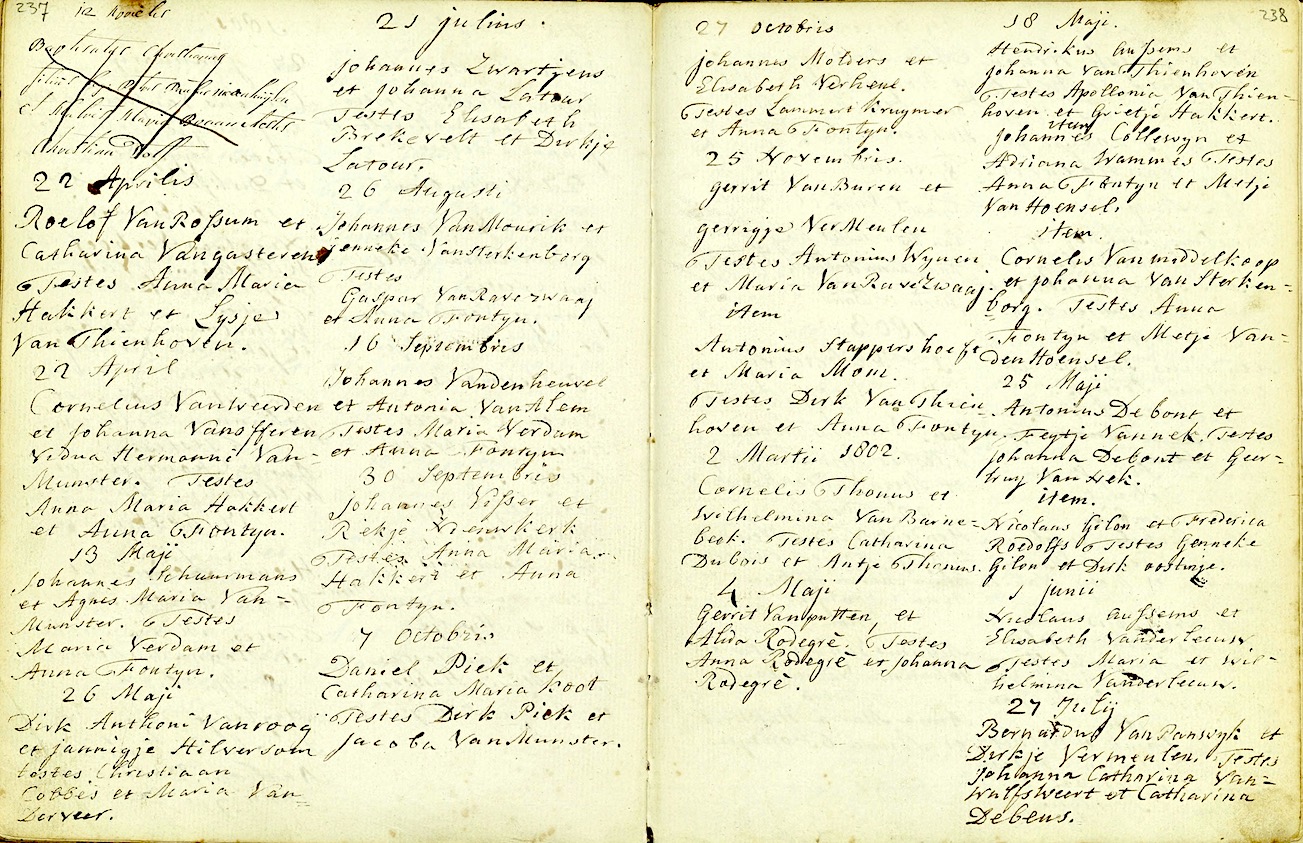 237
22 Aprilis
Roelof VanRossum et
Catharina Vangasteren
Testes Anna Maria
Hakkert et Lysje
Van Thienhoven.
22 April
Cornelius Vanweerden
et Johanna Vansfferen
Vedua Hermanni Van-
Munster. Testes
Anna Maria Hakkert
et Anna Fontyn.
13 Maji
Johannes Schuurmans
et Agnes Maria Van=
Munster. Testes
Maria Verdam et
Anna Fontyn.
26 Maji
Dirk Anthoni Vanroog
et Jannigje Hilversom
testes Christiaan
Cobbes et Maria Van=
Derveer.
21 julius.
Johannes Zwartjens
et Johanna Latour
Testes Elisabeth
Brekevelt et Dirkje
Latour.
26 Augusti
Johannes VanMourik et
Jenneke Vansterkenborg
Testes
Gaspar VanRavezwaaj
et Anna Fontyn.
16 Septembris
Johannes Vandenheuvel
et Antonia VanAlem
Testes Maria Verdam
et Anna Fontyn
30 Septembris
Johannes Visser et
Rikje Nieuwkerk
Testes Anna Maria
Hakkert et Anna
Fontyn.
7 Octobris
Daniel Piek et
Catharina Maria Koot
Testes Dirk Piek et
Jacoba VanMunster.
27 octobris
Johannes Molders et
Elisabeth Verheul.
Testes Lammert Kruymer
et Anna Fontyn.
25 Novembris.
gerrit VanBuren et
gerrigje VerMeulen
Testes Antonius Wynen
et Maria VanRaveZwaaj.
item
Antonius Stappershoeft
et Maria Mom.
Testes Dirk VanThien
hoven et Anna Fontyn.
2 Martii 1802.
Cornelis Thonus et
Wilhelmina VanBarne=
beek. Testes Catharina
Dubois et Antje Thonus.
4 Maji
Gerrit Vanputten et
Alida Rodegrè. Testes
Anna Rodegrè et Johanna
Rodegrè.
238
18 Maji.
Hendrikus Aussems et
Johanna VanThienhoven
Testes Apollonia VanThien-
hoven et Grietje Hakkert.
item
Johannes Collewyn et
Adriana Wammes Testes
Anna Fontyn et Metje
VanHoensel.
item.
Cornelis Vanmiddelkoop
et Johanna VanSterken-
borg. Testes Anna
Fontyn et Metje Van=
denHoensel.
25 Maji
Antonius Debont et
Feytje Vannek. Testes
Johanna Debont et Geer=
truy VanNek.
item.
Nicolaus Gilon et Frederica
Roedolfs Testes Genneke
Gilon et Dirk oostinje.
1 junii
Nicolaus Aussems et
Elisabeth Vanderleeuw
Testes Maria et Wil-
helmina Vanderleeuw.
27 Julij
Bernardus VanPanswyk et
Dirkje Vermeulen. Testes
Johanna Catharina Van=
Wulfsweert et Catharina
Debeus.